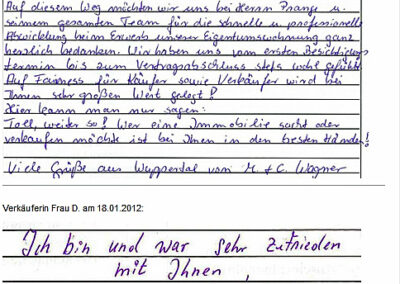 Auf diesem Weg möchten wir uns bei Herrn Prange u.
seinem gesamten Team für die schnelle u. professionelle
Abwicklung beim Erwerb unserer Eigentumswohnung ganz
herzlich bedanken. Wir haben uns vom ersten Besichtigungs-
termin bis zum Vertragsabschluss stets wohl gefühlt.
Auf Fairness für Käufer sowie Verkäufer wird bei
Ihnen sehr großen Wert gelegt!
Hier kann man nur sagen:
Toll, weiter so! Wer eine Immobilie sucht oder
verkaufen möchte ist bei Ihnen in den besten Händen!
Viele Grüße aus Wuppertal von M. + C. Wagner
Verkäuferin Frau D. am 18.01.2012:
Ich bin und war sehr zufrieden
mit Ihnen,